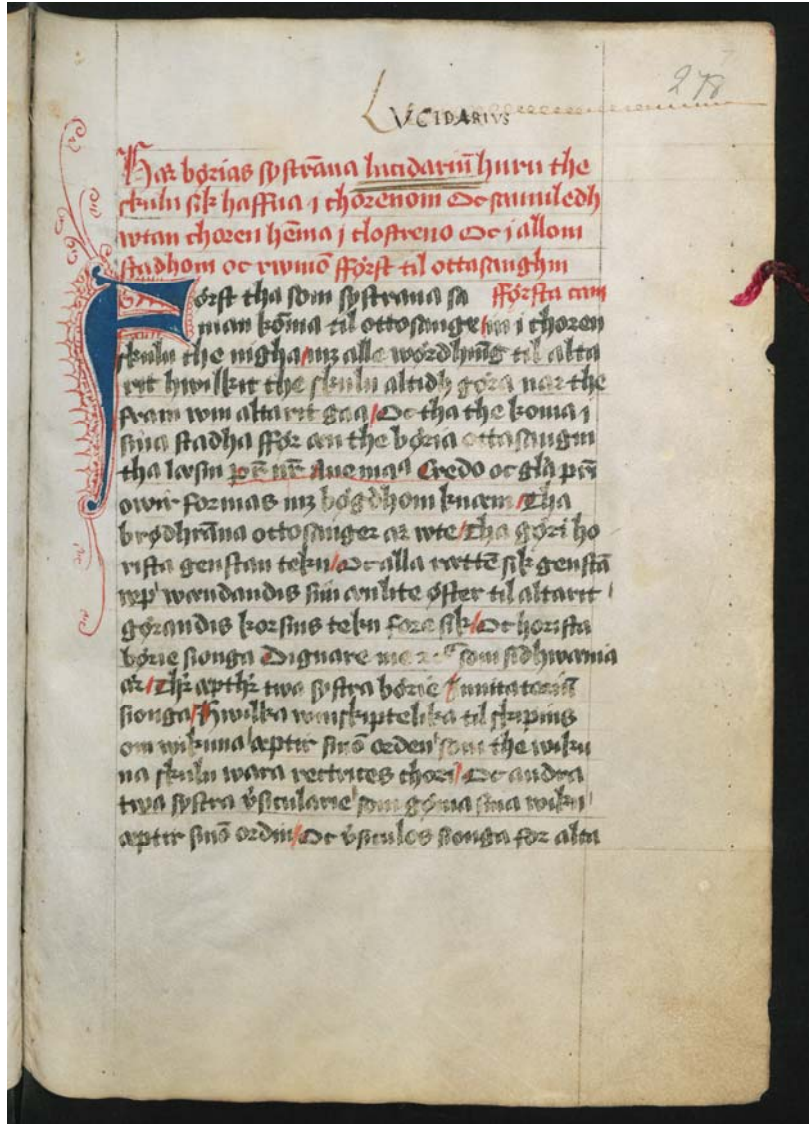 278
LVCIDARIVS
Hær børias systrāna lucidariū huru the
skulu sik haffua j chorenom Oc samuledh
wtan choren hēma j closteeno Oc j allom
stadhom oc rwmō fførst til ottasanghin
Først tha som systrana sa fførsta cām
man kōma til ottosange in i choren
skulu the nigha mz alle wørdhūg til alta
rit hwilkit the skulu altidh gøra nar the
fram wm altarit gaa Oc tha the koma j
sina stadha ffør æn the børia ottasangin
tha læsin pr̄ nr̄ Aue maa Credo oc glā prī
owir formas mz bøgdhom knæm Tha
brødhrāna ottosanger ær wte Tha gøri ho
rista genstan tekn Oc alla rættē sik genstā
wp wændandis sin anlite øster til altarit
gørandis korsins tekn fore sik Oc horista
børie sionga Dignare me som sidhwania
ær Thr̄ æpthr̄ twa systra børie jnuitatoriū
sionga Hwilka wmskiptelika til skipins
om wikuna æptir sinō orden som the wiku
na skulu wara rectrices chori Oc andra
twa systra v̄sicularie som gøma sina wiku
æptir sinō ordin Oc v̄siculos sionga for alta